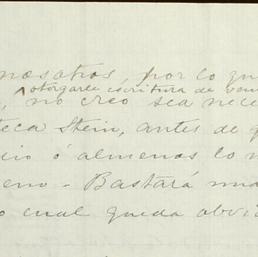 nosotros, por lo qu
otorgarle escritura de ven
, no creo sea nece
teca Stein, antes de
dio ó almenos lo
eno - Bastará
o cual queda obvi